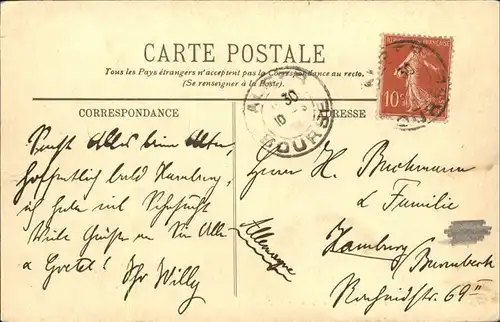 CARTE POSTALE
Tous les Pays étrangers n'acceptent pas la Correspondance au recto.
(Se renseigner à la Poste).
CORRESPONDANCE
Sonst Alles beim Alten,
hoffentlich bald Hamburg,
ich habe viel Sehnsucht
Viele Grüsse an Sie Alle
& Gretel! Ihr Willy
ADRESSE
Herrn H. Buchmann
& Familie
Hamburg
Barmbeck
69 II
Allemagne
RÉPUBLIQUE FRANÇAISE
10c
30
10
BOURSE